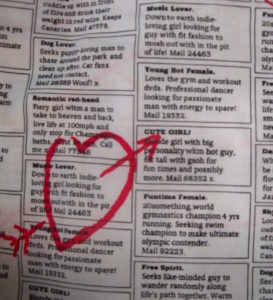 cuddle up with in front
of fire and drink their
weight in red wine. Keeps
Canaries. Mail 47378.
Dog Lover.
Seeks puppy-loving man to
chase around the park and
clean up after. Cat fans
need not contact.
Mail 28389 Woof! x
Romantic red-head.
Fiery girl a man to
take to heaven and back,
live life at 100mph and
only stop for
baths. Call
me x Mail
Music Lover.
Down to earth indie-
loving girl looking for
guy with fit fashion to
mosh out with in the pit
of life! Mail 24463
Young Hot Female.
Loves the gym and workout
dvds. Professional dancer
looking for passionate
man with energy to spare!
Mail 19332.
CUTE GIRL!
Music Lover.
Down to earth indie-
loving girl looking for
guy with fit fashion to
mosh out with in the pit
of life! Mail 24463
Young Hot Female.
Loves the gym and workout
dvds. Professional dancer
looking for passionate
man with energy to spare!
Mail 19332.
CUTE GIRL!
girl with big
personality wltn hot guy,
6ft tall with gsoh for
fun times and possibly
more. Mail 68352 x.
Funtime Female.
20something, world
gymnastics champion 4 yrs
running. Seeking swim
champion to make ultimate
olympic contender.
Mail 92223.
Free Spirit.
Seeks like-minded guy to
wander randomly along
life's path together. Warm